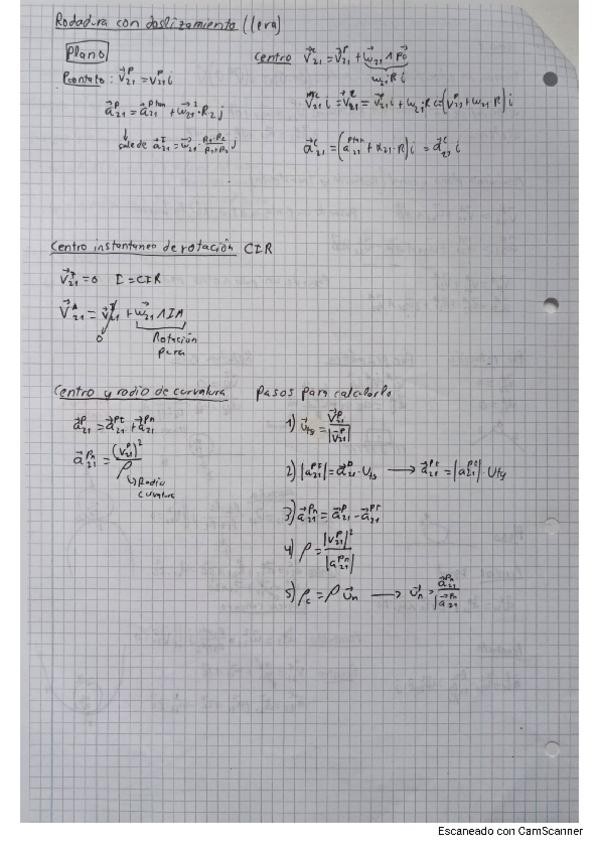 Rodadura con deslizamiento (lera)
Plano
P contacto: v⃗₂₁ᴾ = v₂₁ᴾ i
a⃗₂₁ᴾ = a⃗₂₁ᴾᵗᵃⁿ + w⃗₂₁² · R₂ j
sale de a⃗₂₁ᴵ = w⃗₂₁² · (R₁·R₂)/(R₁+R₂) j
centro v⃗₂₁ᶜ = v⃗₂₁ᴾ + w⃗₂₁ ∧ P⃗O
w₂₁ R i
i = v⃗₂₁ᶜ = v⃗₂₁ᴾ i + w₂₁ R i = (v₂₁ᴾ + w₂₁ R) i
a⃗₂₁ᶜ = (a₂₁ᴾᵗᵃⁿ + α₂₁ · R) i = a⃗₂₁ᶜ i
Centro instantaneo de rotación CIR
v⃗₂₁ᴵ = 0 I = CIR
v⃗₂₁ᴬ = v⃗₂₁ᴵ + w⃗₂₁ ∧ IA
0
Rotación
pura
Centro y radio de curvatura
a⃗₂₁ᴾ = a⃗₂₁ᴾᵗ + a⃗₂₁ᴾⁿ
a⃗₂₁ᴾⁿ = (v₂₁ᴾ)²/ρ
Radio
curvatura
Pasos para calcularlo
1) u⃗tg = v⃗₂₁ᴾ/|v⃗₂₁ᴾ|
2) |a₂₁ᴾᵗ| = a⃗₂₁ᴾ · Utg → a⃗₂₁ᴾᵗ = |a₂₁ᴾᵗ| · Utg
3) a⃗₂₁ᴾⁿ = a⃗₂₁ᴾ - a⃗₂₁ᴾᵗ
4) ρ = |v₂₁ᴾ|²/|a₂₁ᴾⁿ|
5) ρc = ρ u⃗n → u⃗n = a⃗₂₁ᴾⁿ/|a⃗₂₁ᴾⁿ|
Escaneado con CamScanner